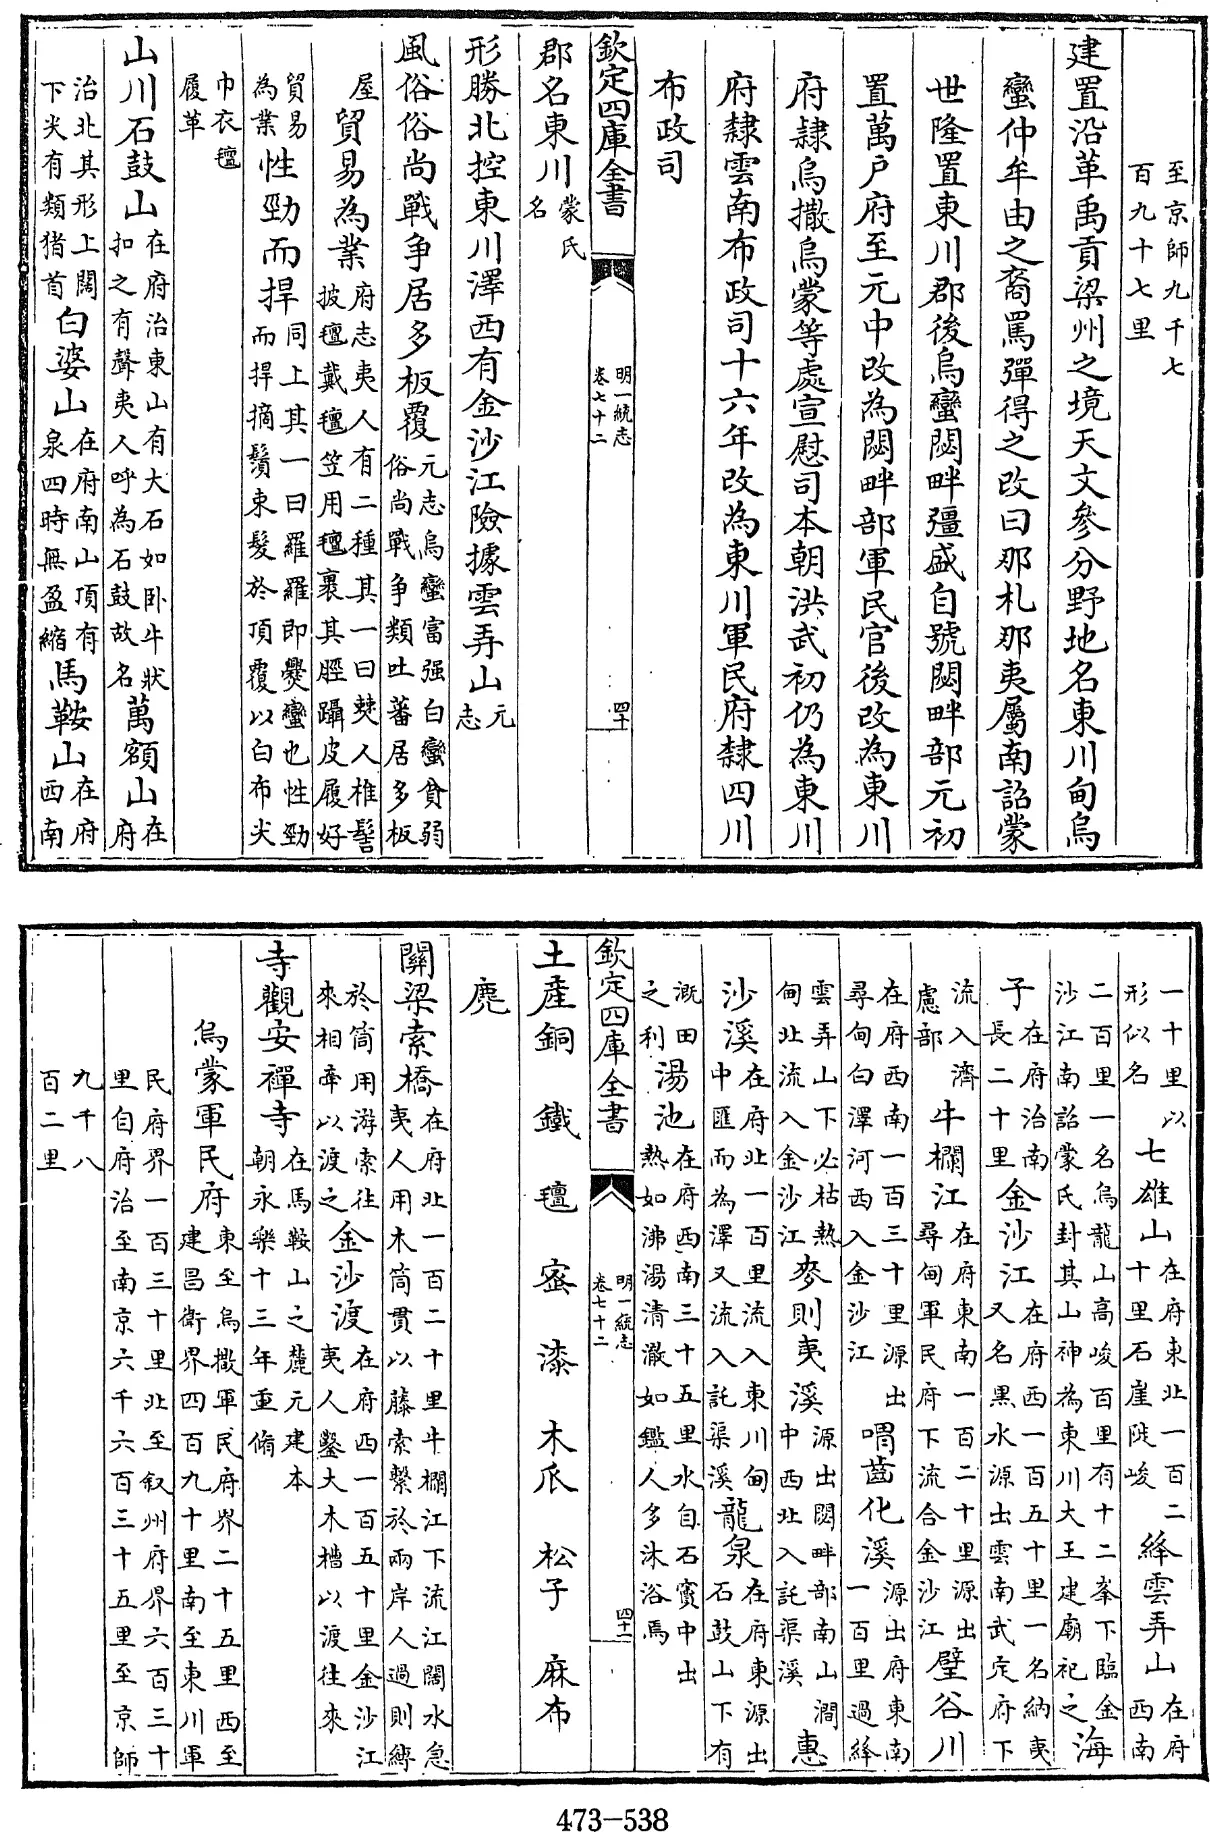 至京師九千七
百九十七里
建置沿革禹貢梁州之境天文參分野地名東川甸烏
蠻仲牟由之裔罵彈得之改曰那札那夷屬南詔蒙
世隆置東川郡後烏蠻閟畔彊盛自號閟畔部元初
置萬户府至元中改為閟畔部軍民官後改為東川
府隷烏撒烏蒙等處宣慰司本朝洪武初仍為東川
府隷雲南布政司十六年改為東川軍民府隷四川
布政司
欽定四庫全書
明一統志
卷七十二
四十
郡名東川蒙氏
名
形勝北控東川澤西有金沙江險據雲弄山元
志
風俗俗尚戰争居多板覆元志烏蠻富强白蠻貧弱
俗尚戰争類吐蕃居多板
屋貿易為業府志夷人有二種其一曰僰人椎髻
披氊戴氊笠用氊裹其脛躡皮履好
貿易
為業性勁而捍同上其一曰羅羅即㸑蠻也性勁
而捍摘鬚束髮於頂覆以白布尖
巾衣氊
履革
山川石鼓山在府治東山有大石如卧牛狀
扣之有聲夷人呼為石鼓故名萬額山在
府
治北其形上闊
下尖有類猪首白婆山在府南山頂有
泉四時無盈縮馬鞍山在府
西南
一十里以
形似名七雄山在府東北一百二
十里石崖陡峻絳雲弄山在府
西南
二百里一名烏龍山高峻百里有十二峯下臨金
沙江南詔蒙氏封其山神為東川大王建廟祀之海
子在府治南
長二十里金沙江在府西一百五十里一名納夷
又名黑水源出雲南武定府下
流入濟
慮部牛欄江在府東南一百二十里源出
尋甸軍民府下流合金沙江壁谷川
在府西南一百三十里源出
尋甸白澤河西入金沙江喟菑化溪源出府東南
一百里過絳
雲弄山下必枯熱
甸北流入金沙江麥則夷溪源出閟畔部南山澗
中西北入託渠溪惠
沙溪在府北一百里流入東川甸
中匯而為澤又流入託渠溪龍泉在府東源出
石鼓山下有
溉田
之利湯池在府西南三十五里水自石竇中出
熱如沸湯清澈如鑑人多沐浴焉
欽定四庫全書
明一統志
卷七十二
四十一
土産銅 鐵 氊 宻 漆 木瓜 松子 麻布
麂
關梁索橋在府北一百二十里牛欄江下流江闊水急
夷人用木筒貫以藤索繫於兩岸人過則縛
於筒用游索往
來相牽以渡之金沙渡在府西一百五十里金沙江
夷人鑿大木槽以渡往來
寺觀安禪寺在馬鞍山之麓元建本
朝永樂十三年重脩
烏蒙軍民府東至烏撒軍民府界二十五里西至
建昌衛界四百九十里南至東川軍
民府界一百三十里北至叙州府界六百三十
里自府治至南京六千六百三十五里至京師
九千八
百二里
473-538